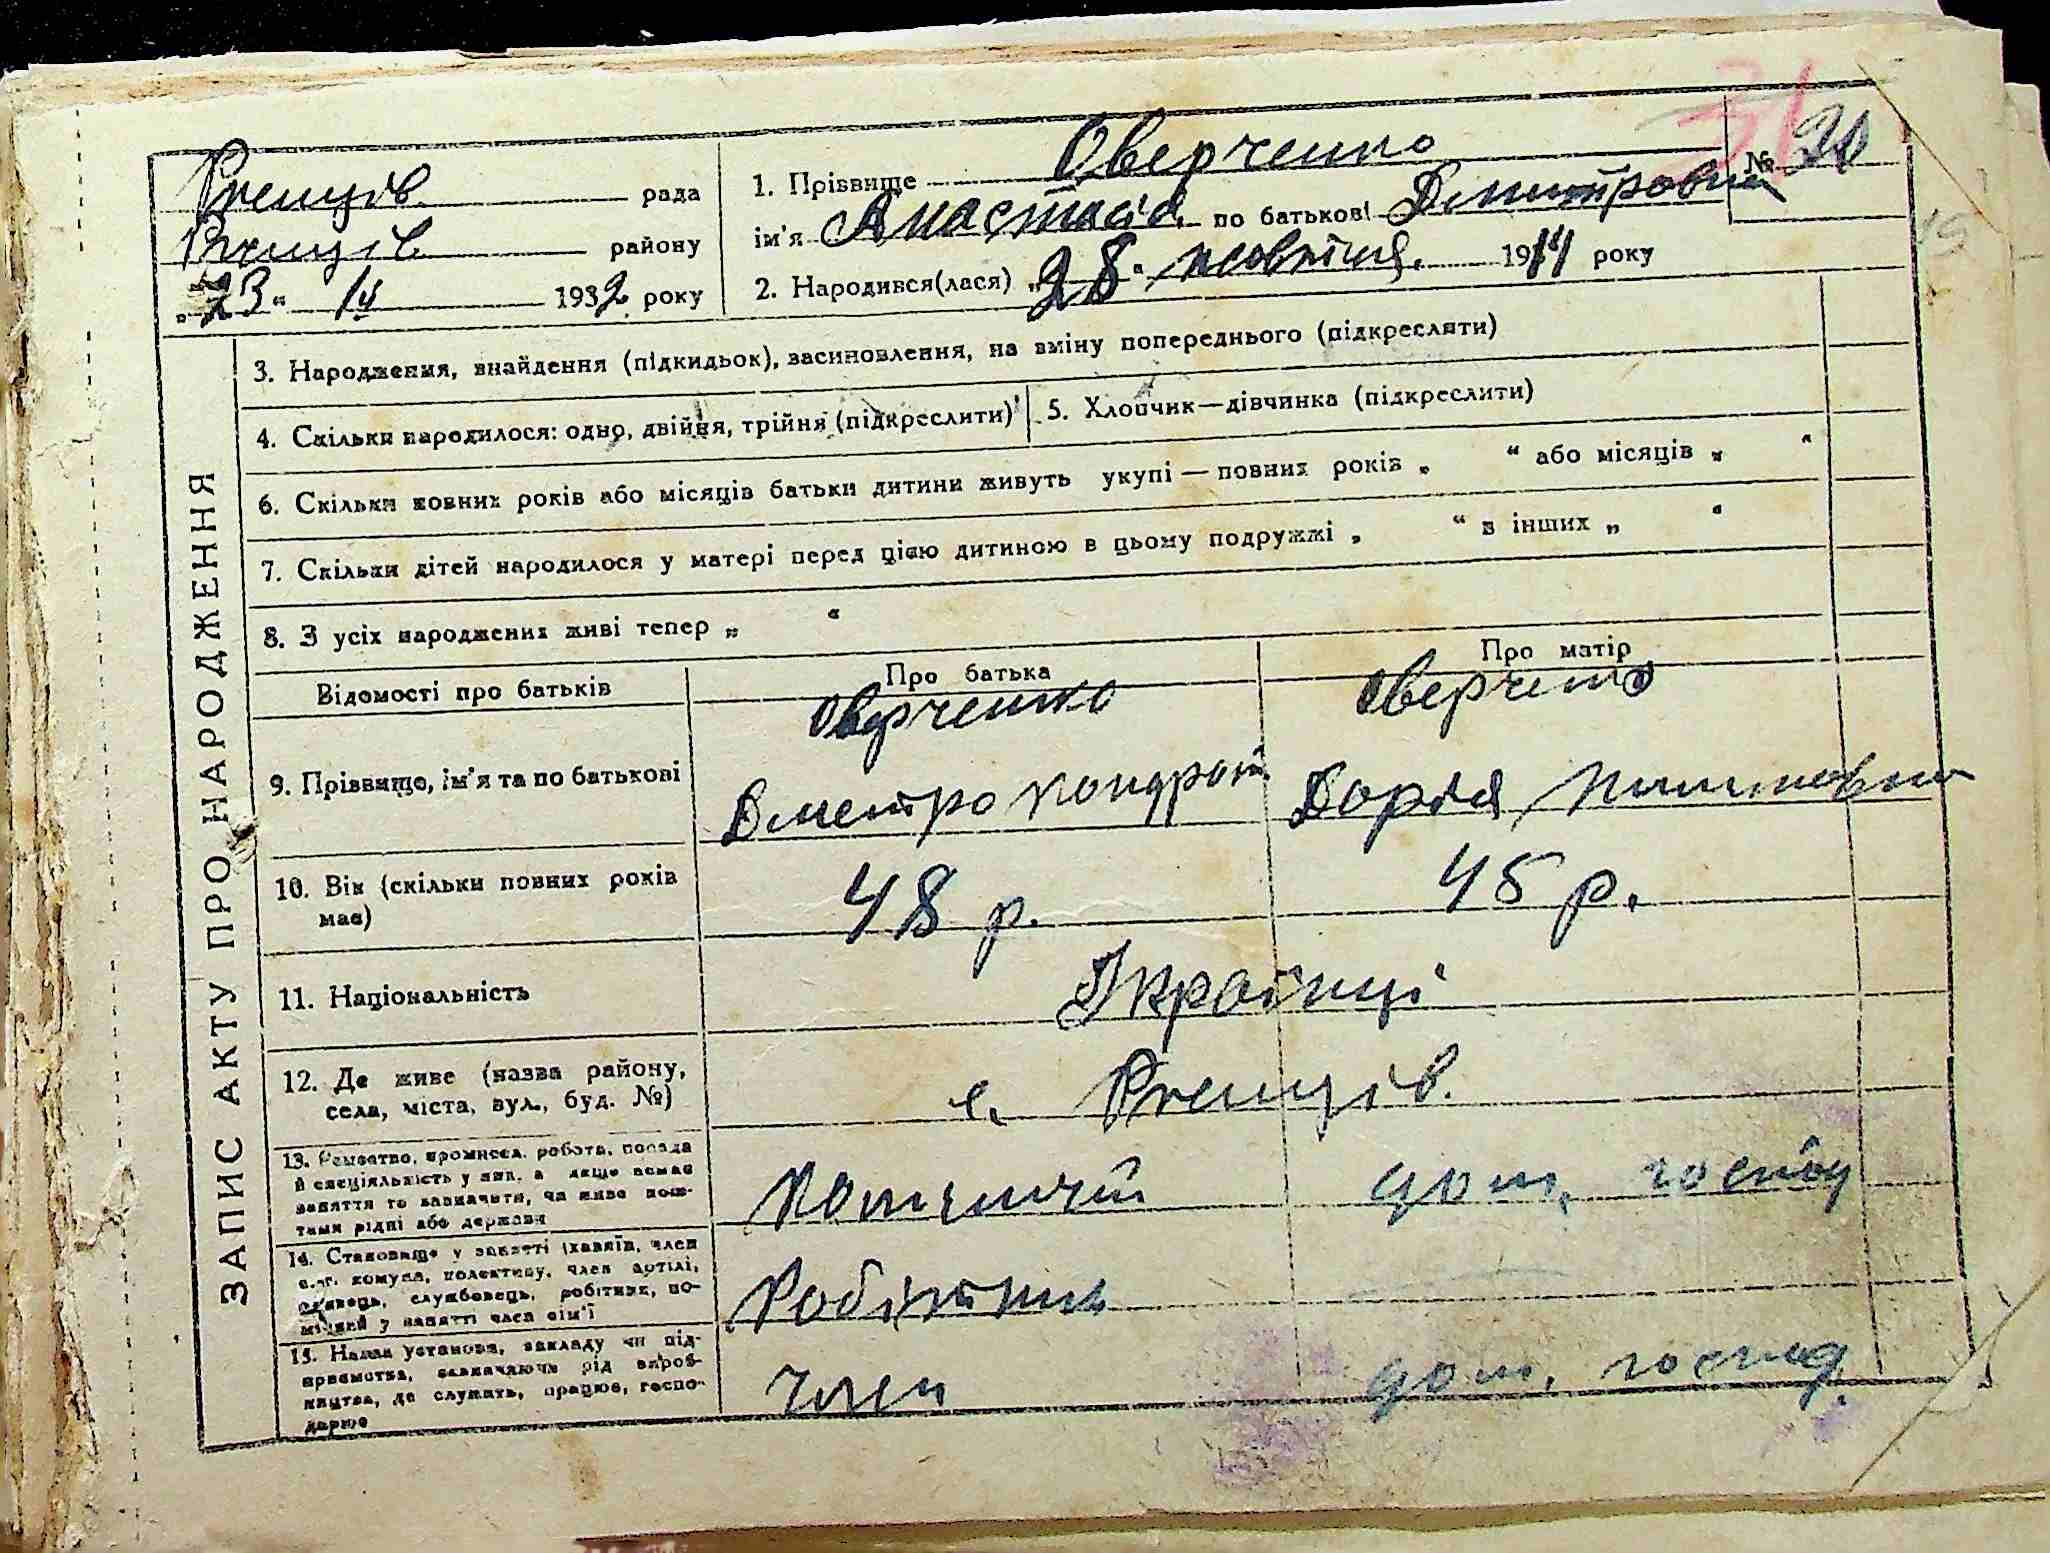 Ржищів рада
Ржищів району
„23“ IV 1932 року
1. Прізвище Оверченко
№
ім'я Анастасія по батькові Дмитровна
2. Народився(лася) „28“ жовтня 1911 року
31
ЗАПИС АКТУ ПРО НАРОДЖЕННЯ
3. Народження, знайдення (підкидьок), засиновлення, на зміну попереднього (підкреслити)
4. Скільки народилося: одно, двійня, трійня (підкреслити)
5. Хлопчик—дівчинка (підкреслити)
6. Скільки повних років або місяців батьки дитини живуть укупі — повних років „ “ або місяців „ “
7. Скільки дітей народилося у матері перед цією дитиною в цьому подружжі „ “ в інших „ “
8. З усіх народжених живі тепер „ “
Відомості про батьків
Про батька
Про матір
9. Прізвище, ім'я та по батькові
Оверченко
Дметро Кондрат.
Оверченко
Дарія
10. Вік (скільки повних років
має)
48 р.
45 р.
11. Національність
Українці
12. Де живе (назва району,
села, міста, вул., буд. №)
с. Ржищів.
13. Ремество, промисел, робота, посада
й спеціяльність у них, а якщо немає
заняття то зазначити, чи живе кош-
тами рідні або держави
дом. господ
14. Становище у занятті (хазяїн, член
с.-г. комуни, колективу, член артілі,
службовець, робітник, по-
у занятті член сім'ї
Робітник
15. Назва установи, закладу чи під-
приємства, зазначаючи рід вироб-
ництва, де служить, працює, госпо-
дарює
член
дом. господ.